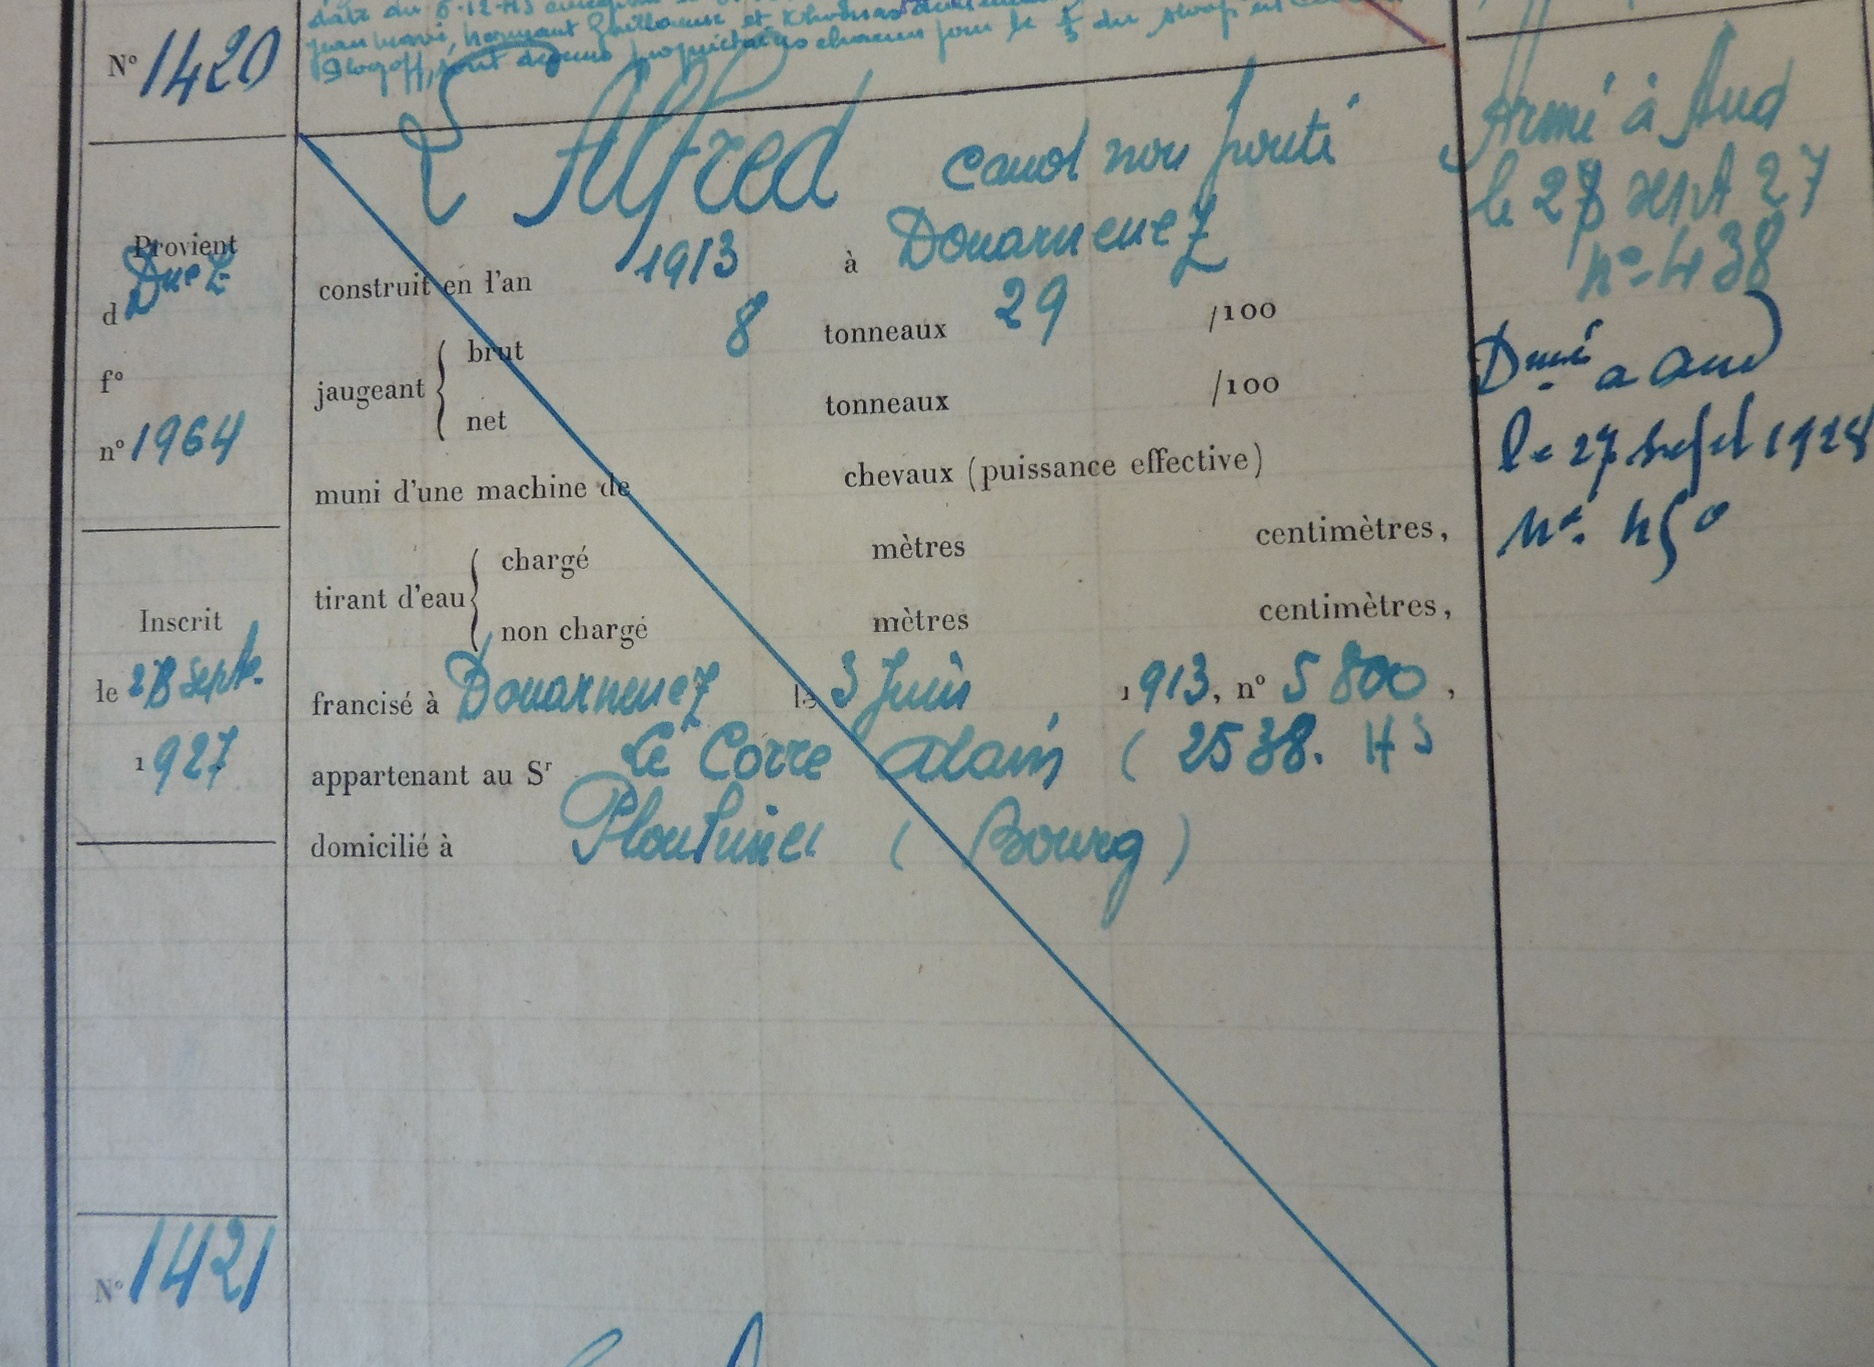 date du 6-12-43
Normant Guillaume et Thomas
Plogoff, sont depuis propriétaires chacun pour le 1/3 du sloop
N° 1420
L'Alfred canot non ponté
Provient
d Dnez
f°
n° 1964
construit en l'an 1913 à Douarnenez
jaugeant { brut 8 tonneaux 29 /100
net tonneaux /100
muni d'une machine de chevaux (puissance effective)
tirant d'eau { chargé mètres centimètres,
non chargé mètres centimètres,
Inscrit
le 28 sept.
1927
francisé à Douarnenez le 3 Juin 1913, n° 5800,
appartenant au Sr Le Corre Alain (2538. HS
domicilié à Plouhinec (Bourg)
Armé à Aud
le 28 sept 27
n° 438
Dmé a Aud
le 27 sept 1928
n° 450
N° 1421